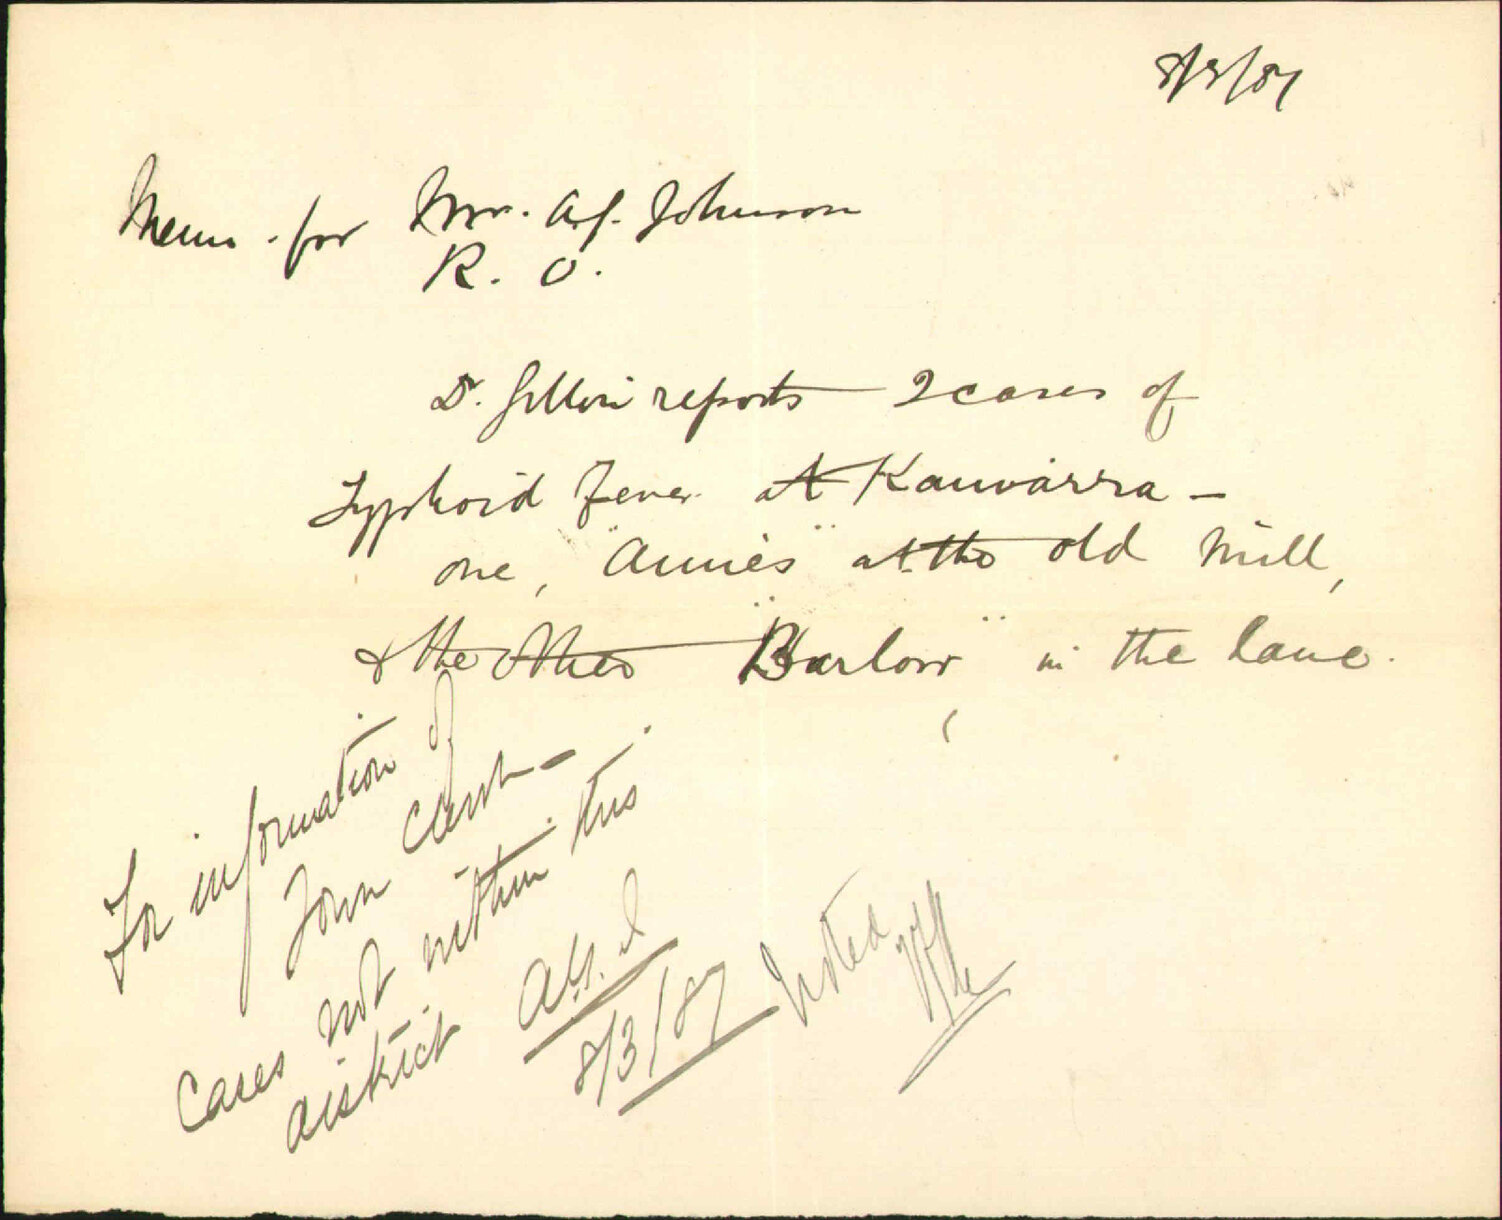 8/3/87
Memo. for Mr. A.J. Johnson
R. O.
Dr. Gillon reports 2 cases of
Typhoid Fever at Kanwarra -
one, "Annie's" at the old Mill,
& the other "Barlow" in the Lane.
For information of
Town Clerk -
Cases not within this
district A.J.J
8/3/87
Noted